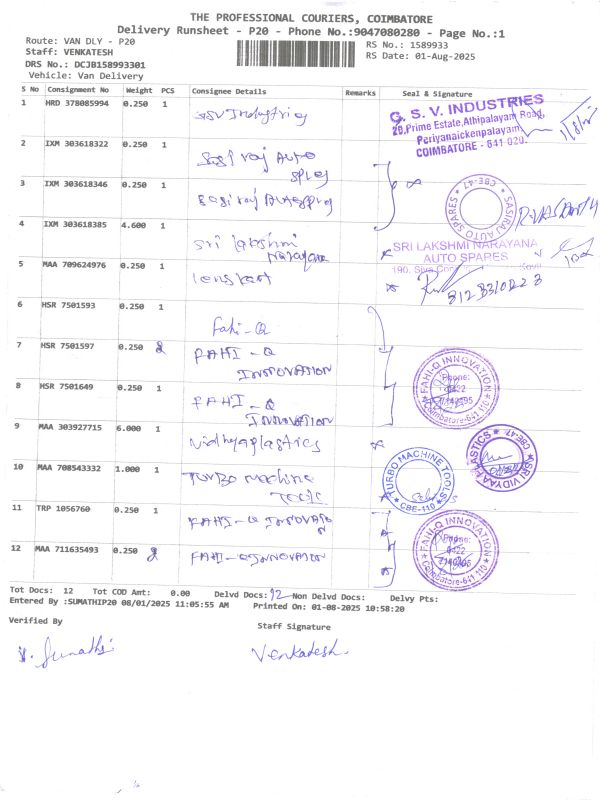 THE PROFESSIONAL COURIERS, COIMBATORE
Delivery Runsheet - P20 - Phone No.:9047080280 - Page No.:1
Route: VAN DLY - P20
RS No.: 1589933
Staff: VENKATESH
RS Date: 01-Aug-2025
DRS No.: DCJB158993301
Vehicle: Van Delivery
S No Consignment No Weight PCS Consignee Details Remarks Seal & Signature
1 HRD 378085994 0.250 1 GSV Industries
G. S. V. INDUSTRIES
20, Prime Estate, Athipalayam Road,
Periyanaickenpalayam,
COIMBATORE - 641 020.
2 IXM 303618322 0.250 1 Sasi raj Auto
Spres
3 IXM 303618346 0.250 1 Sasiraj AUTOSpres
SASIRAJ AUTO SPARES
CBE-47
4 IXM 303618385 4.600 1 Sri lakshmi
Narayana
SRI LAKSHMI NARAYANA
AUTO SPARES
5 MAA 709624976 0.250 1
6 HSR 7501593 0.250 1 Fahi-Q
7 HSR 7501597 0.250 2 FAHI-Q
INNOVATION
8 HSR 7501649 0.250 1 FAHI-Q
INNOVATION
FAHI-Q INNOVATION
Phone:
0422
Coimbatore-641 110
9 MAA 303927715 6.000 1 Vidhyaplastics
SRI VIDYAA PLASTICS
CBE-47
10 MAA 708543332 1.000 1 TURBO Machine
TURBO MACHINE TOOLS
CBE-110
11 TRP 1056760 0.250 1 FAHI-Q INNOVATION
12 MAA 711635493 0.250 2 FAHI-Q INNOVATION
FAHI-Q INNOVATION
Phone:
0422
Coimbatore-641 110
Tot Docs: 12 Tot COD Amt: 0.00 Delvd Docs: 12 Non Delvd Docs: Delvy Pts:
Entered By :SUMATHIP20 08/01/2025 11:05:55 AM Printed On: 01-08-2025 10:58:20
Verified By
Staff Signature
V. Sumathi
Venkatesh